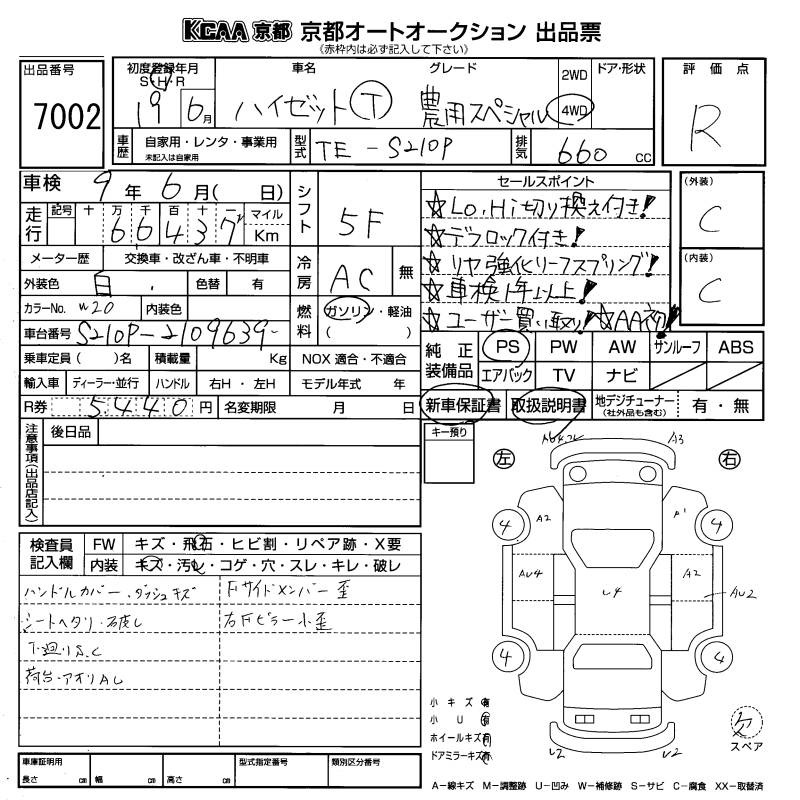 KCAA 京都 京都オートオークション 出品票
(赤枠内は必ず記入して下さい)
出品番号 7002
初度登録年月 S・H・R 19 6月
車名 ハイゼットT
グレード 農用スペシャル
2WD 4WD
ドア・形状
評価点 R
車歴 自家用・レンタ・事業用 未記入は自家用
型式 TE-S210P
排気 660 CC
車検 9年6月(日)
走行 記号 十 万 千 百 十 一 66437 マイル Km
シフト 5F
セールスポイント
☆Lo,Hi切り換え付き!
☆デフロック付き!
☆リヤ強化リーフスプリング!
☆車検1年以上!
☆ユーザー買い取り!☆AA初!
(外装) C
(内装) C
メーター歴 交換車・改ざん車・不明車
冷房 AC 無
外装色 白 色替 有
カラーNo. W20 内装色
燃料 ガソリン・軽油 ( )
車台番号 S210P-2109639
乗車定員( )名 積載量 Kg NOX 適合・不適合
輸入車 ディーラー・並行 ハンドル 右H・左H モデル年式 年
R券 5440円 名変期限 月 日
純正装備品 PS PW AW サンルーフ ABS
エアバック TV ナビ
新車保証書 取扱説明書 地デジチューナー(社外品も含む) 有・無
注意事項(出品店記入) 後日品
キー預り
左 右
A3
4 A2 P1 4
AU4 U4 A2 AU2
4 4
U2 U2
検査員記入欄 FW キズ・飛石・ヒビ割・リペア跡・X要
内装 キズ・汚し・コゲ・穴・スレ・キレ・破レ
ハンドルカバー、ダッシュキズ
シートヘタリ・破レ
下廻りS、C
荷台・アオリAU
Fサイドメンバー歪
右Fピラー小歪
小キズ有
小U有
ホイールキズ有
ドアミラーキズ有
欠 スペア
車庫証明用 長さ cm 幅 cm 高さ cm 型式指定番号 類別区分番号
A-線キズ M-調整跡 U-凹み W-補修跡 S-サビ C-腐食 XX-取替済